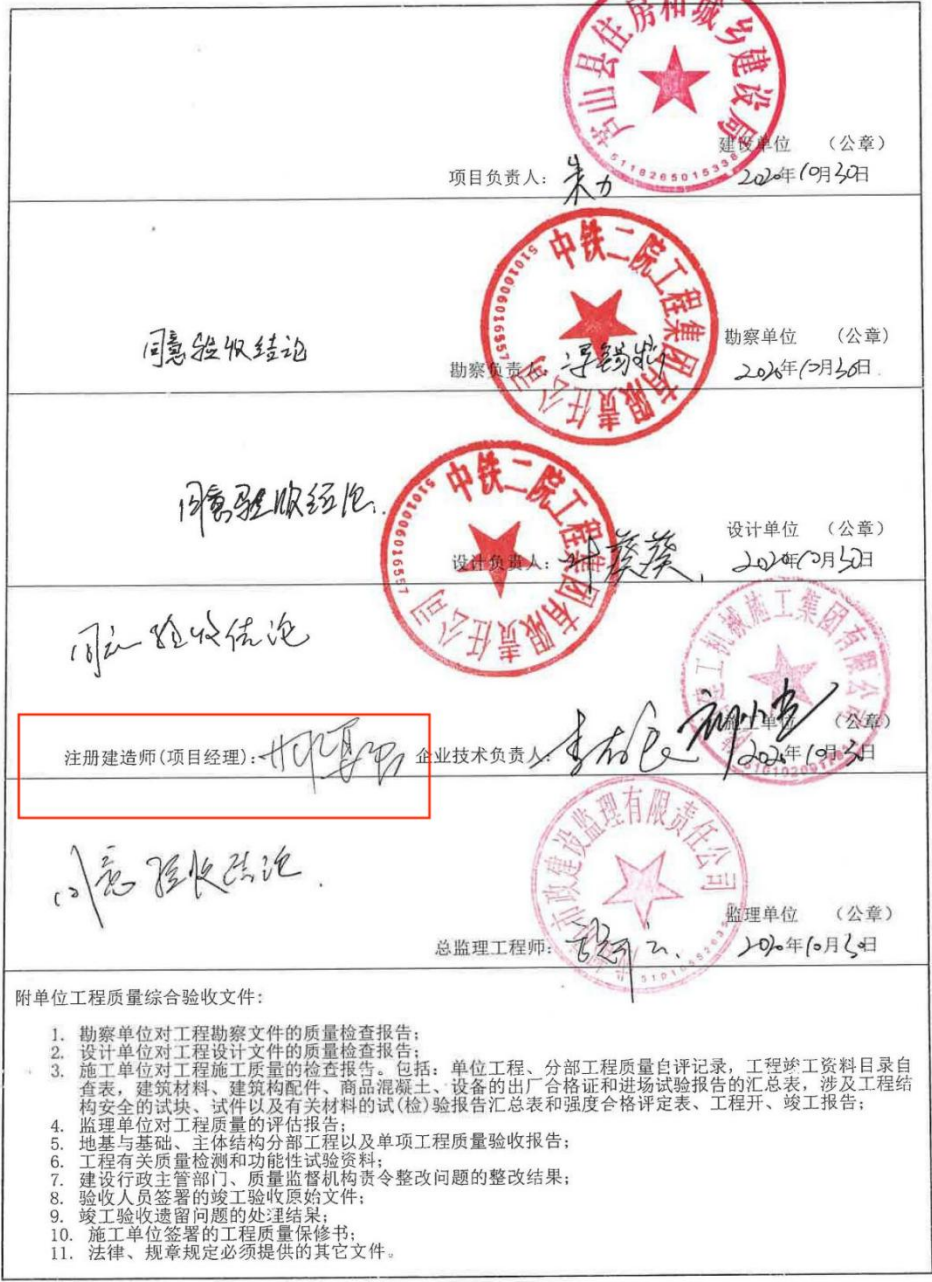 芦山县住房和城乡建设局
5118265015338
建设单位 （公章）
项目负责人: 朱力 2020年10月30日
中铁二院工程集团有限责任公司
5101006016557
同意验收结论
勘察单位 （公章）
勘察负责人: 2020年10月30日
中铁二院工程集团有限责任公司
5101006016557
同意验收结论.
设计单位 （公章）
设计负责人: 叶葵葵 2020年10月30日
同意验收结论
建工机械施工集团有限公司
施工单位 （公章）
注册建造师(项目经理): 企业技术负责人: 2020年10月30日
市政建设监理有限责任公司
同意验收结论.
监理单位 （公章）
总监理工程师: 2020年10月30日
附单位工程质量综合验收文件:
1. 勘察单位对工程勘察文件的质量检查报告;
2. 设计单位对工程设计文件的质量检查报告;
3. 施工单位对工程施工质量的检查报告。包括: 单位工程、分部工程质量自评记录, 工程竣工资料目录自
查表, 建筑材料、建筑构配件、商品混凝土、设备的出厂合格证和进场试验报告的汇总表, 涉及工程结
构安全的试块、试件以及有关材料的试(检)验报告汇总表和强度合格评定表、工程开、竣工报告;
4. 监理单位对工程质量的评估报告;
5. 地基与基础、主体结构分部工程以及单项工程质量验收报告;
6. 工程有关质量检测和功能性试验资料;
7. 建设行政主管部门、质量监督机构责令整改问题的整改结果;
8. 验收人员签署的竣工验收原始文件;
9. 竣工验收遗留问题的处理结果;
10. 施工单位签署的工程质量保修书;
11. 法律、规章规定必须提供的其它文件。